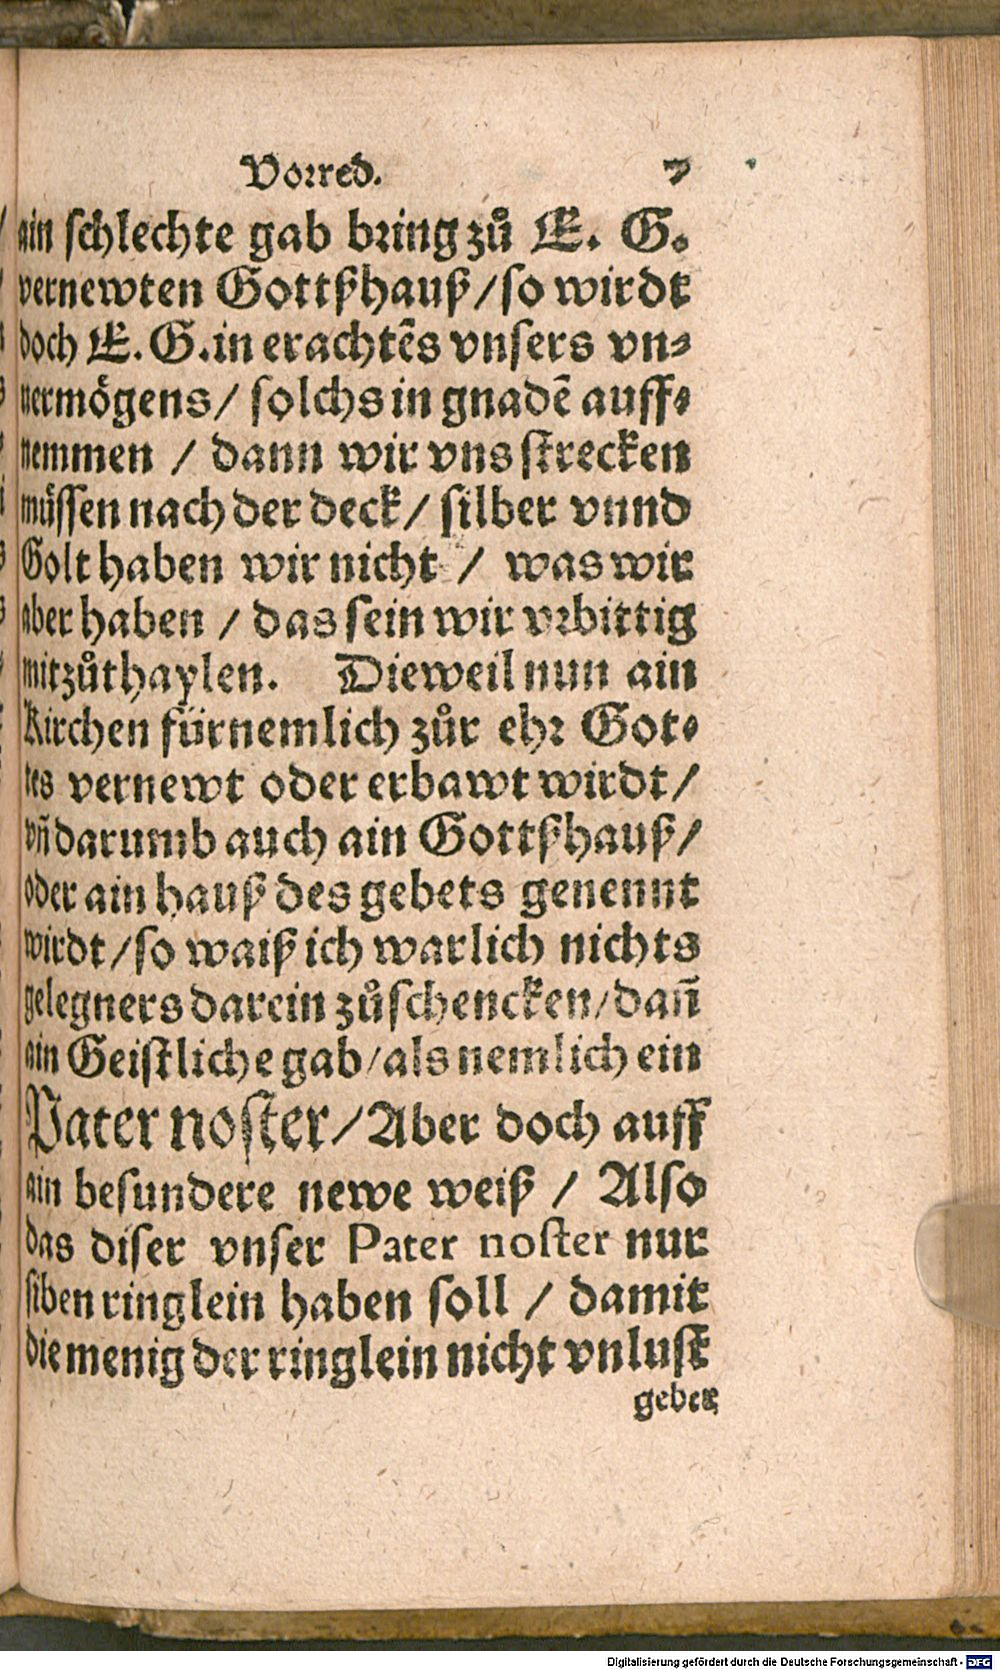 Vorred. 7
ain schlechte gab bring zů E. G.
vernewten Gottßhauß/so wirdt
doch E. G. in erachtẽs vnsers vn-
vermögens/ solchs in gnadẽ auff-
nemmen / dann wir vns strecken
müssen nach der deck/ silber vnnd
Golt haben wir nicht / was wir
aber haben / das sein wir vrbittig
mitzůthaylen. Dieweil nun ain
Kirchen fürnemlich zůr ehr Got-
tes vernewt oder erbawt wirdt/
vñ darumb auch ain Gottßhauß/
oder ain hauß des gebets genennt
wirdt/so waiß ich warlich nichts
gelegners darein zůschencken/dañ
ain Geistliche gab/als nemlich ein
Pater noster/Aber doch auff
ain besundere newe weiß / Also
das diser vnser Pater noster nur
siben ringlein haben soll / damit
die menig der ringlein nicht vnlust
geber,
Digitalisierung gefördert durch die Deutsche Forschungsgemeinschaft - DFG